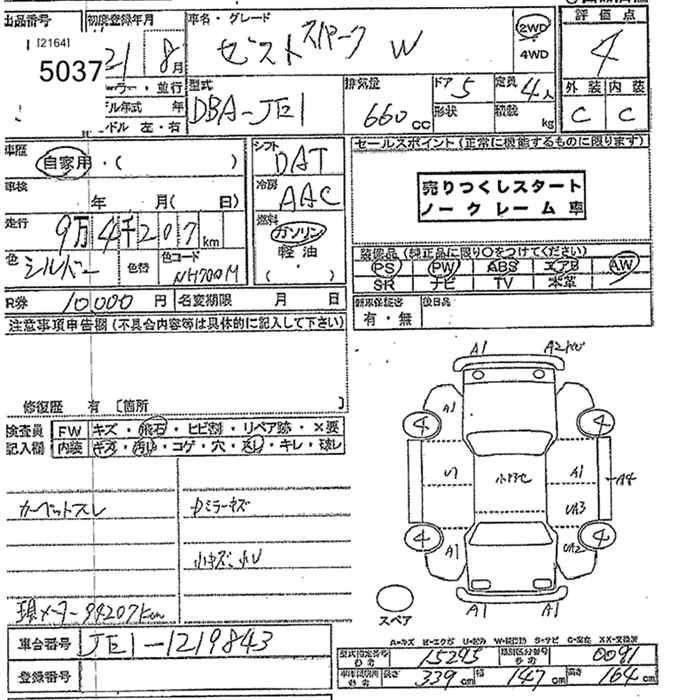 出品番号 初度登録年月 車名・グレード 評価点
[2164]
5037
21 8月
ゼストスパーク W
2WD
4WD
4
カラー・並行
モデル年式 年
ハンドル 左・右
型式
DBA-JE1
排気量
660cc
ドア 5
形状
定員 4人
積載 kg
外装 内装
C C
車歴
自家用・( )
シフト
DAT
セールスポイント(正常に機能するものに限ります)
車検 年 月( 日)
冷房
AAC
売りつくしスタート
ノークレーム車
走行 9万4千207km
燃料
ガソリン
軽油
・
( )
色 シルバー 色替 色コード NH700M
装備品(純正品に限り○をつけてください)
PS PW ABS エアB AW
SR ナビ TV 本革
R券 10,000円 名変期限 月 日
新車保証書 後日品
有・無
注意事項申告欄(不具合内容等は具体的に記入して下さい)
修復歴 有 [箇所 ]
検査員 FW キズ・飛石・ヒビ割・リペア跡・×要
記入欄 内装 キズ・汚れ・コゲ・穴・キレ・破レ
カーペットスレ
Dミラーキズ
小キズ、小U
現メーター94207km
車台番号 JE1-1219843
登録番号
A1
A1
4 4
A1 A4
UA3
4 4
A1 UA2
A1 A1
スペア
A=キズ
型式指定番号 15295 類別区分番号 0091
長さ 339cm 幅 147cm 高さ 164cm